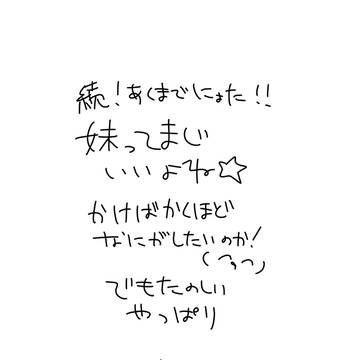 続!あくまでにょた!!
妹ってまじ
いいよね☆
かけばかくほど
なにがしたいのか!
(っ◔っ)
でもたのしい
やっぱり